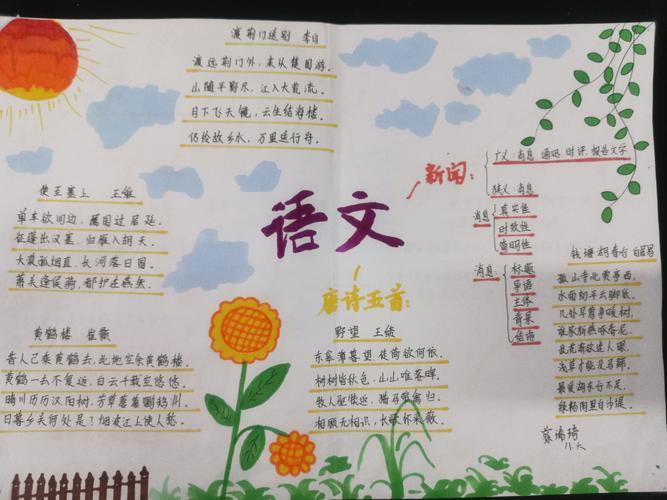 渡荆门送别 李白
渡远荆门外，来从楚国游。
山随平野尽，江入大荒流。
月下飞天镜，云生结海楼。
仍怜故乡水，万里送行舟。
使至塞上 王维
单车欲问边，属国过居延。
征蓬出汉塞，归雁入胡天。
大漠孤烟直，长河落日圆。
萧关逢候骑，都护在燕然。
黄鹤楼 崔颢
昔人已乘黄鹤去，此地空余黄鹤楼。
黄鹤一去不复返，白云千载空悠悠。
晴川历历汉阳树，芳草萋萋鹦鹉洲。
日暮乡关何处是？烟波江上使人愁。
语文
唐诗五首：
野望 王绩
东皋薄暮望，徙倚欲何依。
树树皆秋色，山山唯落晖。
牧人驱犊返，猎马带禽归。
相顾无相识，长歌怀采薇。
新闻：
广义：消息 通讯 时评，报告文学
狭义：消息
消息
真实性
时效性
简明性
消息：
标题
导语
主体
背景
结语
钱塘湖春行 白居易
孤山寺北贾亭西。
水面初平云脚低。
几处早莺争暖树，
谁家新燕啄春泥。
乱花渐欲迷人眼，
浅草才能没马蹄。
最爱湖东行不足，
绿杨阴里白沙堤。
八.六